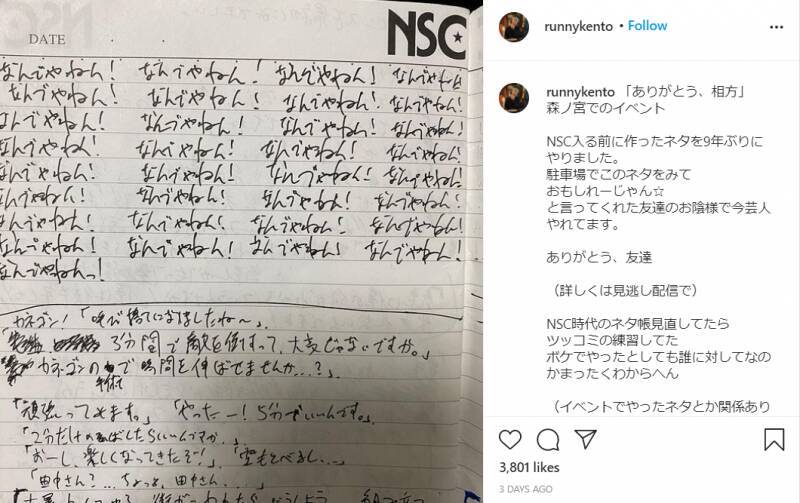 DATE
NSC
なんでやねん! なんでやねん! なんでやねん! なんでやねん!
なんでやねん! なんでやねん! なんでやねん! なんでやねん!
なんでやねん! なんでやねん! なんでやねん! なんでやねん!
なんでやねん! なんでやねん! なんでやねん! なんでやねん!
なんでやねん! なんでやねん! なんでやねん! なんでやねん!
なんでやねん! なんでやねん! なんでやねん! なんでやねん!
なんでやねん! なんでやねん! なんでやねん! なんでやねん!
なんでやねん! なんでやねん! なんでやねん! なんでやねん!
なんでやねんっ!
カネゴン!「呼び捨てになりましたね〜」
3分間で敵を倒すって、大変じゃないですか。」
カネゴンの手術で時間を伸ばせませんか…?」
「頑張ってみます。」「やったー!5分でいいんです。」
「2分だけのばしたらいいんですか…」
「おーし、楽しくなってきたぞ!」「空もとべるし…」
「田中さん?…ちょっと、田中さん…」
runnykento • Follow
runnykento 「ありがとう、相方」
森ノ宮でのイベント
NSC入る前に作ったネタを9年ぶりに
やりました。
駐車場でこのネタをみて
おもしれーじゃん☆
と言ってくれた友達のお陰様で今芸人
やれてます。
ありがとう、友達
（詳しくは見逃し配信で）
NSC時代のネタ帳見直してたら
ツッコミの練習してた
ボケでやったとしても誰に対してなの
かまったくわからへん
（イベントでやったネタとか関係あり
3,801 likes
3 DAYS AGO